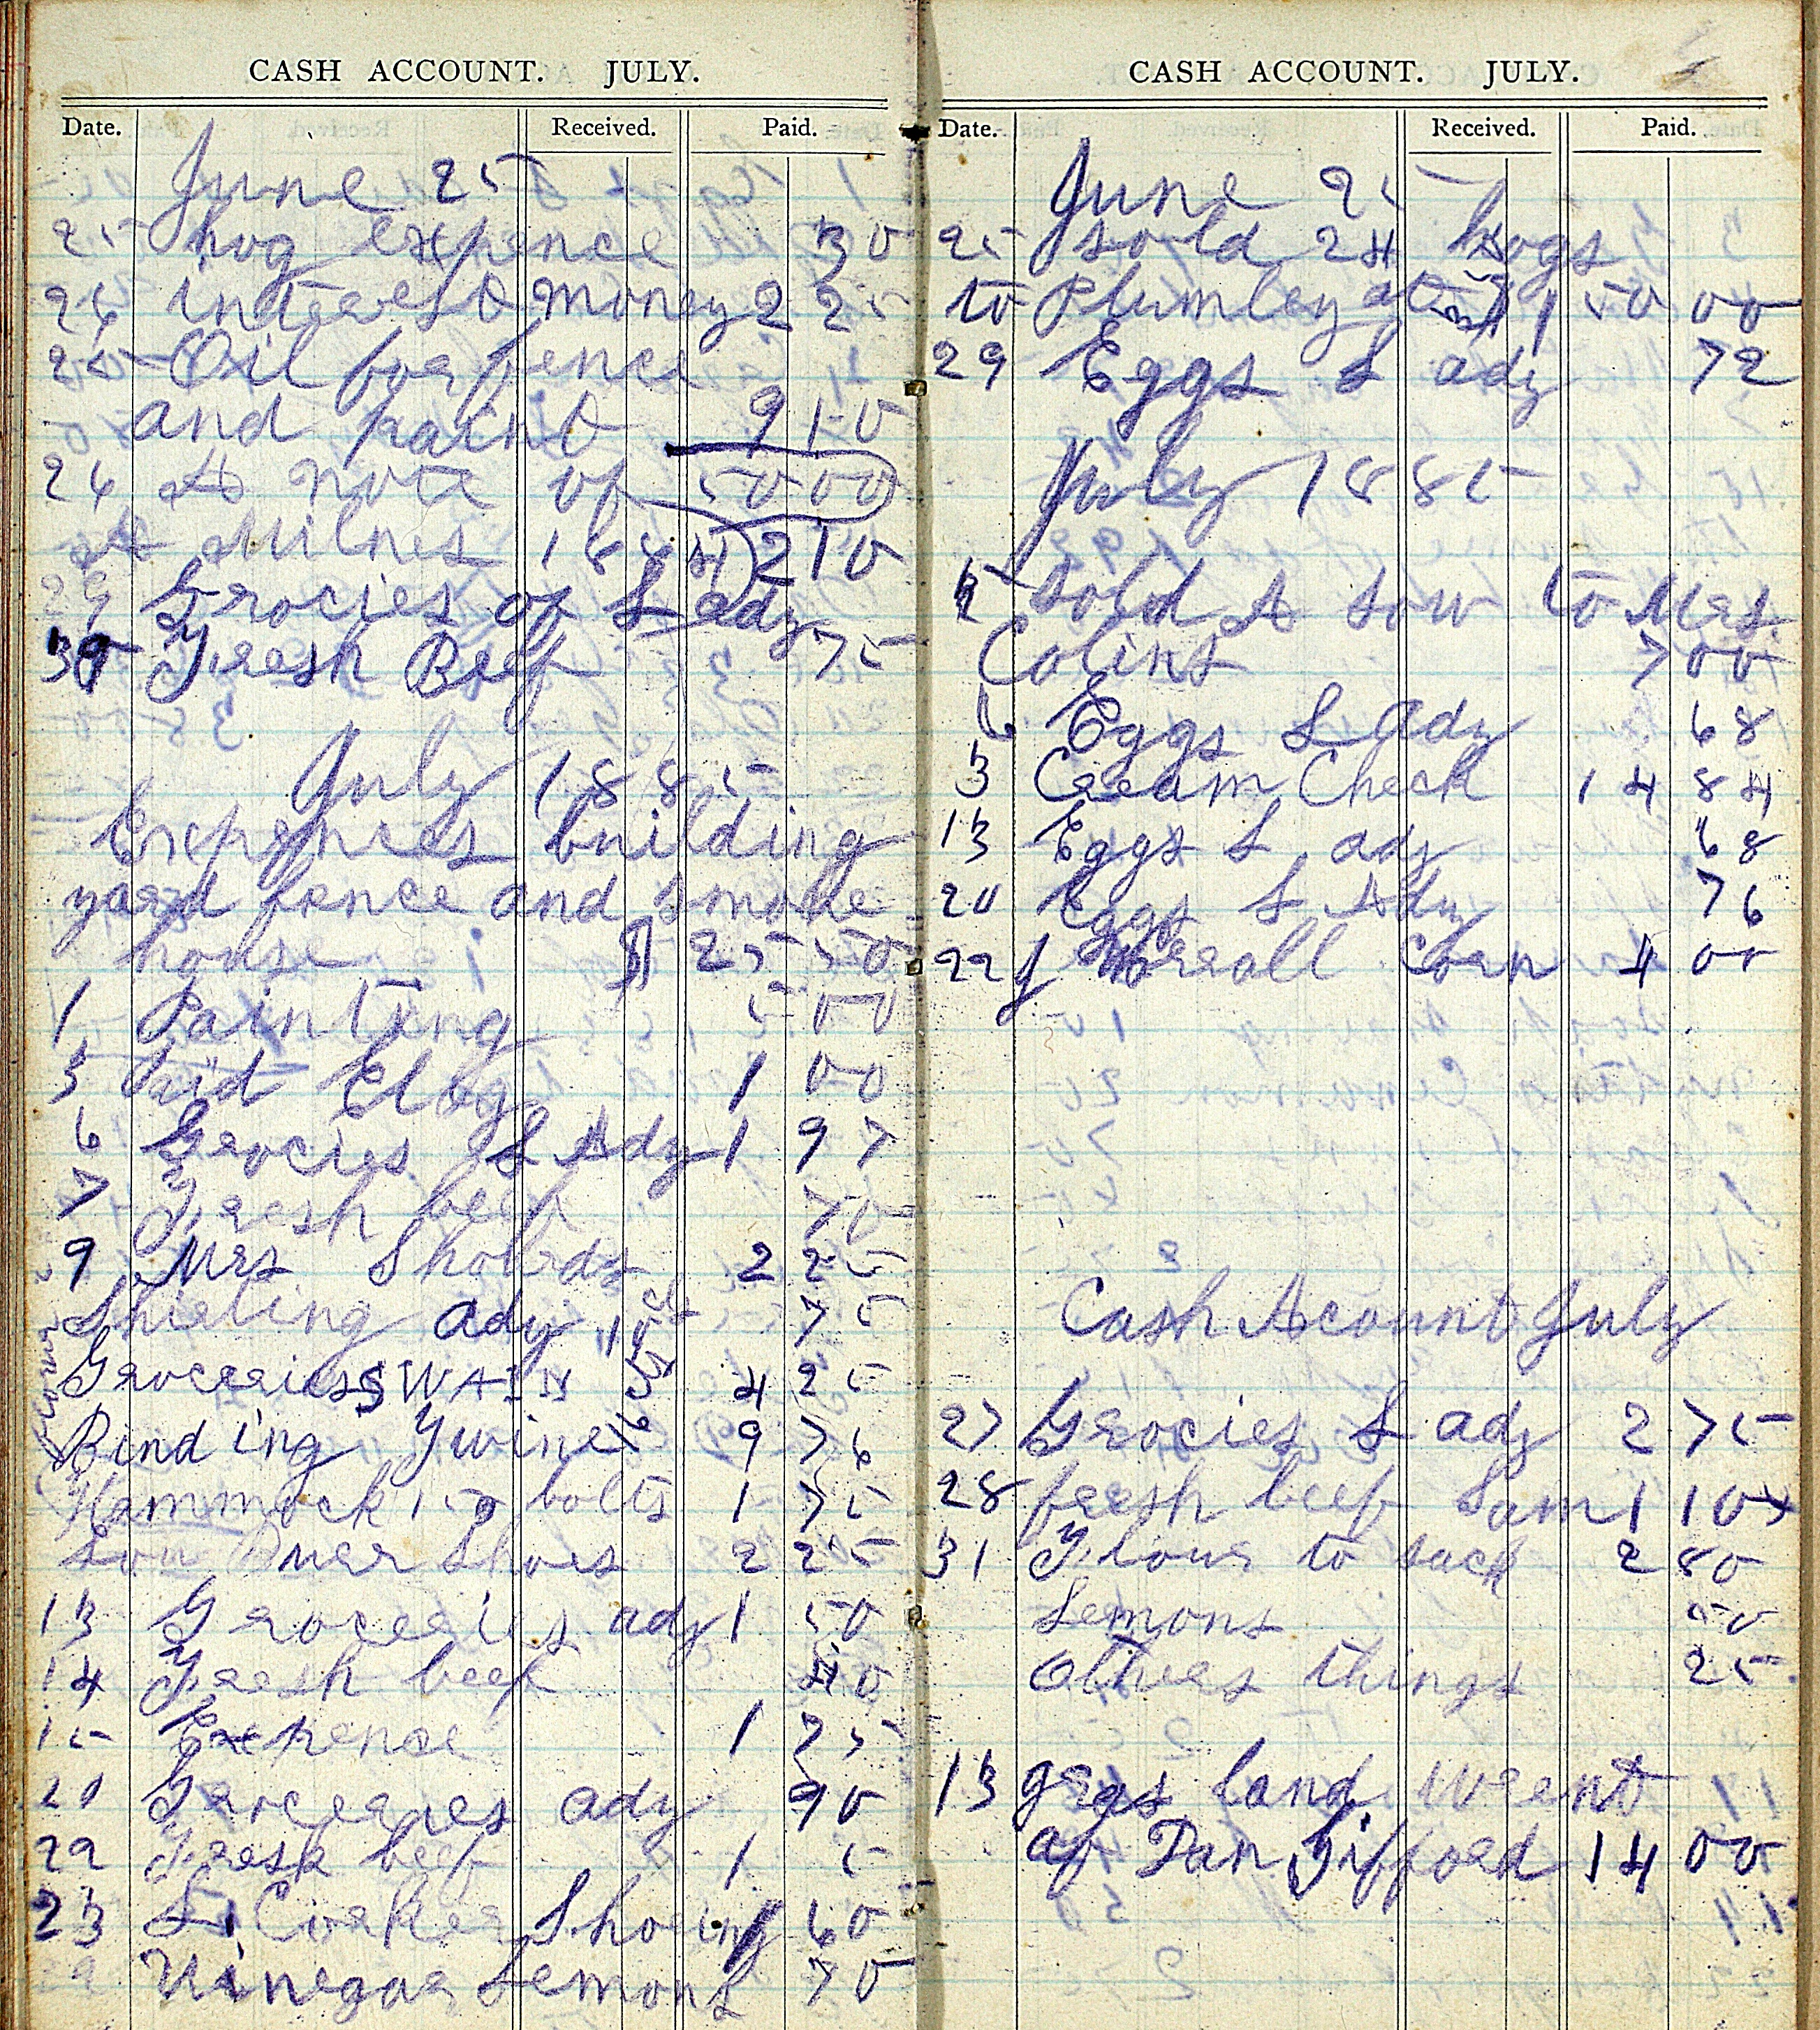 CASH ACCOUNT. JULY.
Date. Received. Paid.
June 25
25 hog expence 30
26 interest money 2 25
25 Oil for fence
and paint 9 10
26 A note of 5000
at Milnes 1884 210
29 Grocies of L ady
30 Fresh Beef 75
July 1885
Expences building
yard fence and smoke
house $ 25 50
1 Painting 5 00
3 Paid 1 00
6 Grocies L Ady 1 97
7 Fresh beef 70
9 Mrs 2 25
Shirting ady 10 75
Groceries SWAIN 4 25
Binding Twine 16 9 76
Hammock 150 bolts 1 75
Lou Shoes 2 25
13 Groceries ady 1 50
14 Fresh beef 40
15 Expence 1 75
20 Grocereies ady 90
22 Fresh beef 1 5
23 Shoeing 60
Vinegar Lemons 70
CASH ACCOUNT. JULY.
Date. Received. Paid.
June 25
25 sold 24 hogs
to Plumley at 150 00
29 Eggs L ady 72
July 1885
sold A sow to Mrs.
Colins 7 00
6 Eggs L Ady 68
3 Cream Check 14 84
13 Eggs L ady 68
20 Eggs L Ady 76
22 J Worrall Corn 4 00
Cash Acount July
27 Grocies L ady 2 75
28 fresh beef Sam 1 10
31 Flour to sack 2 80
Lemons 50
Other things 25
13 grgs land wrent
of Dan Gifford 14 00